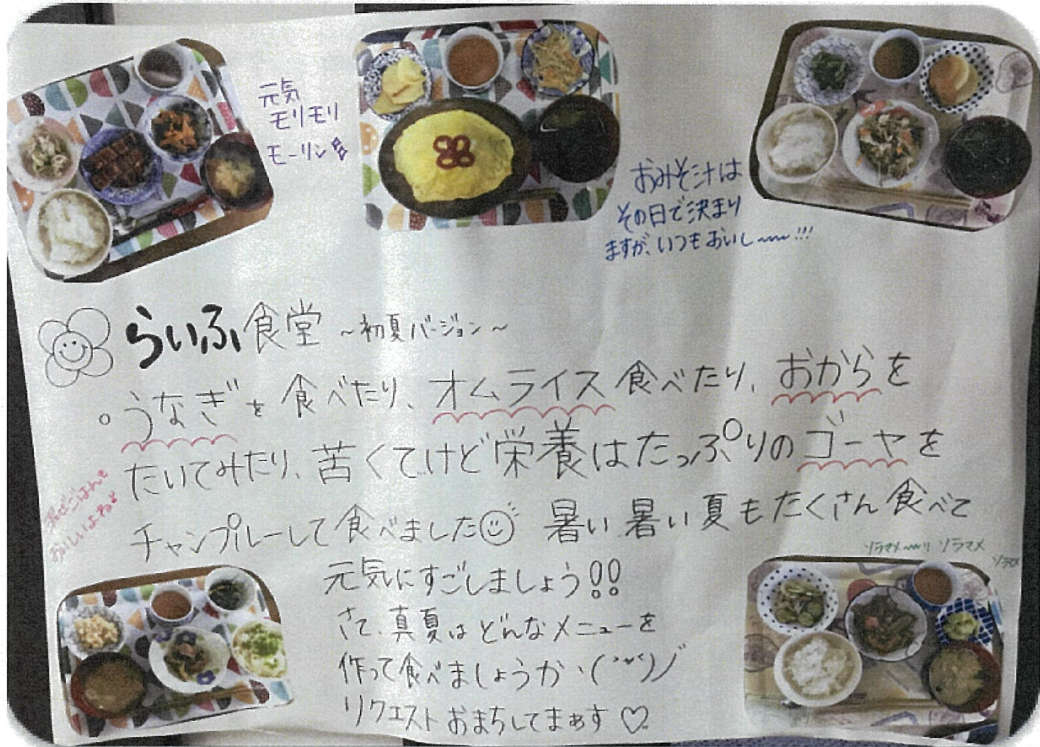 元気
モリモリ
モーリン
おみそ汁は
その日で決まり
ますが、いつもおいし〜!!!
らいふ食堂 〜初夏バージョン〜
○うなぎを食べたり、オムライス食べたり、おからを
たいてみたり、苦くてけど栄養はたっぷりのゴーヤを
チャンプルーして食べました 暑い暑い夏もたくさん食べて
元気にすごしましょう!!
さて、真夏はどんなメニューを
作って食べましょうか
リクエストおまちしてまぁす♡
混ぜごはんも
おいしいよね
ソラマメ〜!! ソラマメ
ソラマメ